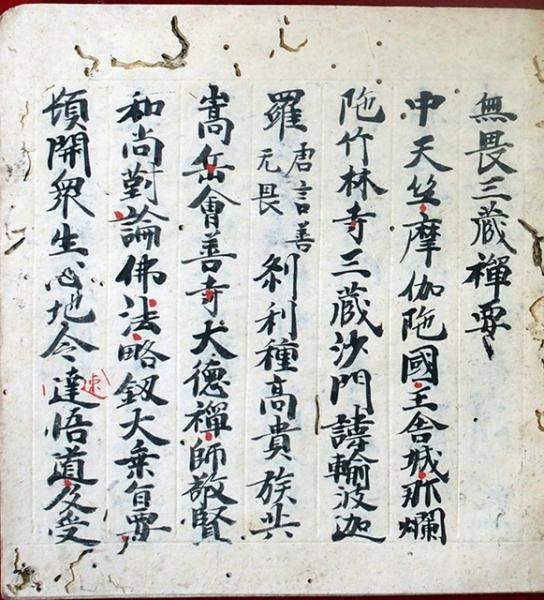 無畏三蔵禪要
中天竺摩伽陁國王舎城那爛
陁竹林寺三蔵沙門諱輸波迦
羅唐言善无畏刹利種髙貴族共
嵩岳會善寺大德禪師敬賢
和尚對論佛法略叙大乗旨要
頓開衆生心地令速達悟道及受